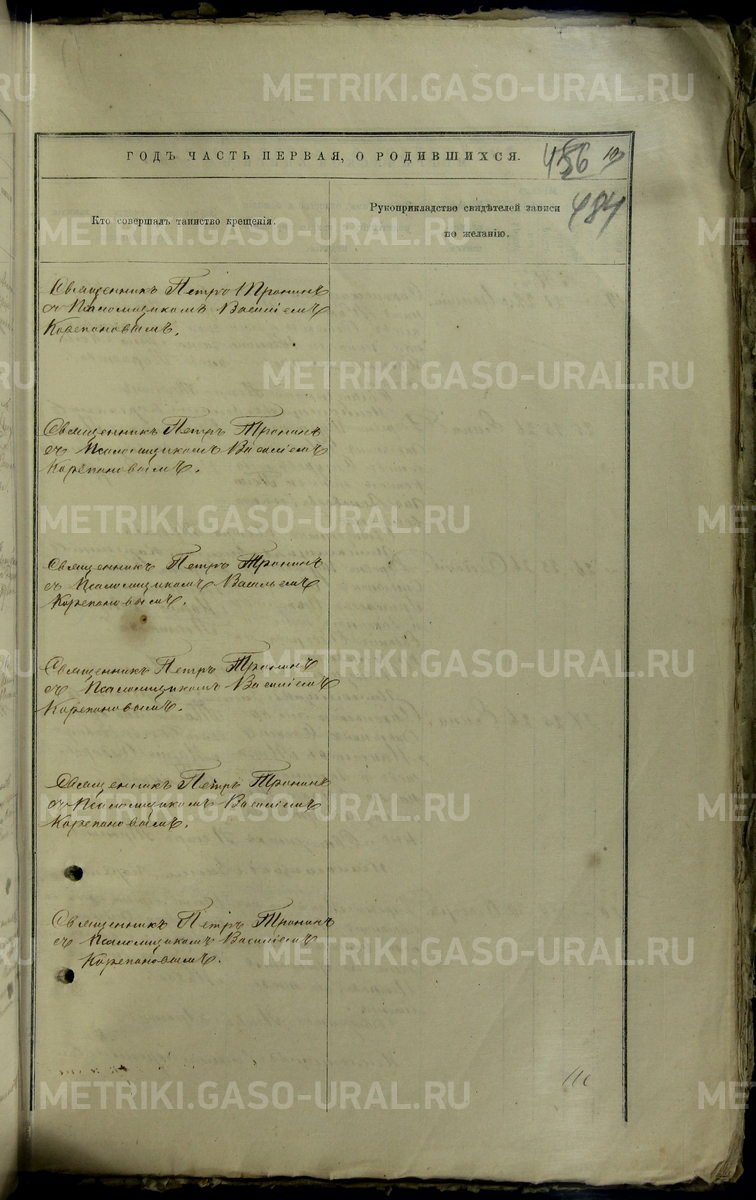 METRIKI.GASO-URAL.RU
ГОДЪ ЧАСТЬ ПЕРВАЯ, О РОДИВШИХСЯ.
456
484
Кто совершалъ таинство крещенія.
Рукоприкладство свидѣтелей записи
по желанію.
Священникъ Петръ Тронинъ
съ Псаломщикомъ Василіемъ
Корепановымъ.
Священникъ Петръ Тронинъ
съ Псаломщикомъ Василіемъ
Корепановымъ.
Священникъ Петръ Тронинъ
съ Псаломщикомъ Васильемъ
Корепановымъ.
Священникъ Петръ Тронинъ
съ Псаломщикомъ Василіемъ
Корепановымъ.
Священникъ Петръ Тронинъ
съ Псаломщикомъ Василіемъ
Корепановымъ.
Священникъ Петръ Тронинъ
съ Псаломщикомъ Василіемъ
Корепановымъ.